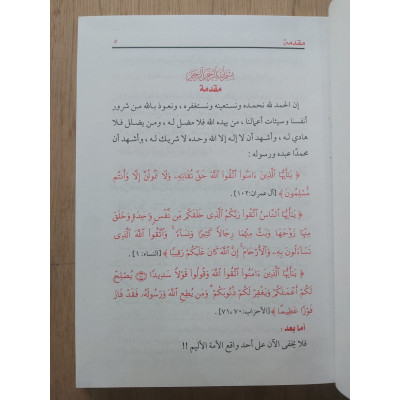 مقدمة ٥
بسم الله الرحمن الرحيم
مقدمة
إن الحمد لله نحمده ونستعينه ونستغفره ، ونعوذ بالله من شرور
أنفسنا وسيئات أعمالنا ، من يهده الله فلا مضل له ، ومن يضلل فلا
هادي له ، وأشهد أن لا إله إلا الله وحده لا شريك له ، وأشهد أن
محمدًا عبده ورسوله :
﴿ يَٰٓأَيُّهَا ٱلَّذِينَ ءَامَنُوا۟ ٱتَّقُوا۟ ٱللَّهَ حَقَّ تُقَاتِهِۦ وَلَا تَمُوتُنَّ إِلَّا وَأَنتُم
مُّسْلِمُونَ ﴾ [آل عمران:١٠٢] .
﴿ يَٰٓأَيُّهَا ٱلنَّاسُ ٱتَّقُوا۟ رَبَّكُمُ ٱلَّذِى خَلَقَكُم مِّن نَّفْسٍ وَٰحِدَةٍ وَخَلَقَ
مِنْهَا زَوْجَهَا وَبَثَّ مِنْهُمَا رِجَالًا كَثِيرًا وَنِسَآءً ۚ وَٱتَّقُوا۟ ٱللَّهَ ٱلَّذِى
تَسَآءَلُونَ بِهِۦ وَٱلْأَرْحَامَ ۚ إِنَّ ٱللَّهَ كَانَ عَلَيْكُمْ رَقِيبًا ﴾ [النساء: ١] .
﴿ يَٰٓأَيُّهَا ٱلَّذِينَ ءَامَنُوا۟ ٱتَّقُوا۟ ٱللَّهَ وَقُولُوا۟ قَوْلًا سَدِيدًا ۝ يُصْلِحْ
لَكُمْ أَعْمَٰلَكُمْ وَيَغْفِرْ لَكُمْ ذُنُوبَكُمْ ۗ وَمَن يُطِعِ ٱللَّهَ وَرَسُولَهُۥ فَقَدْ فَازَ
فَوْزًا عَظِيمًا ﴾ [الأحزاب: ٧٠، ٧١] .
أما بعد :
فلا يخفى الآن على أحد واقع الأمة الأليم !!